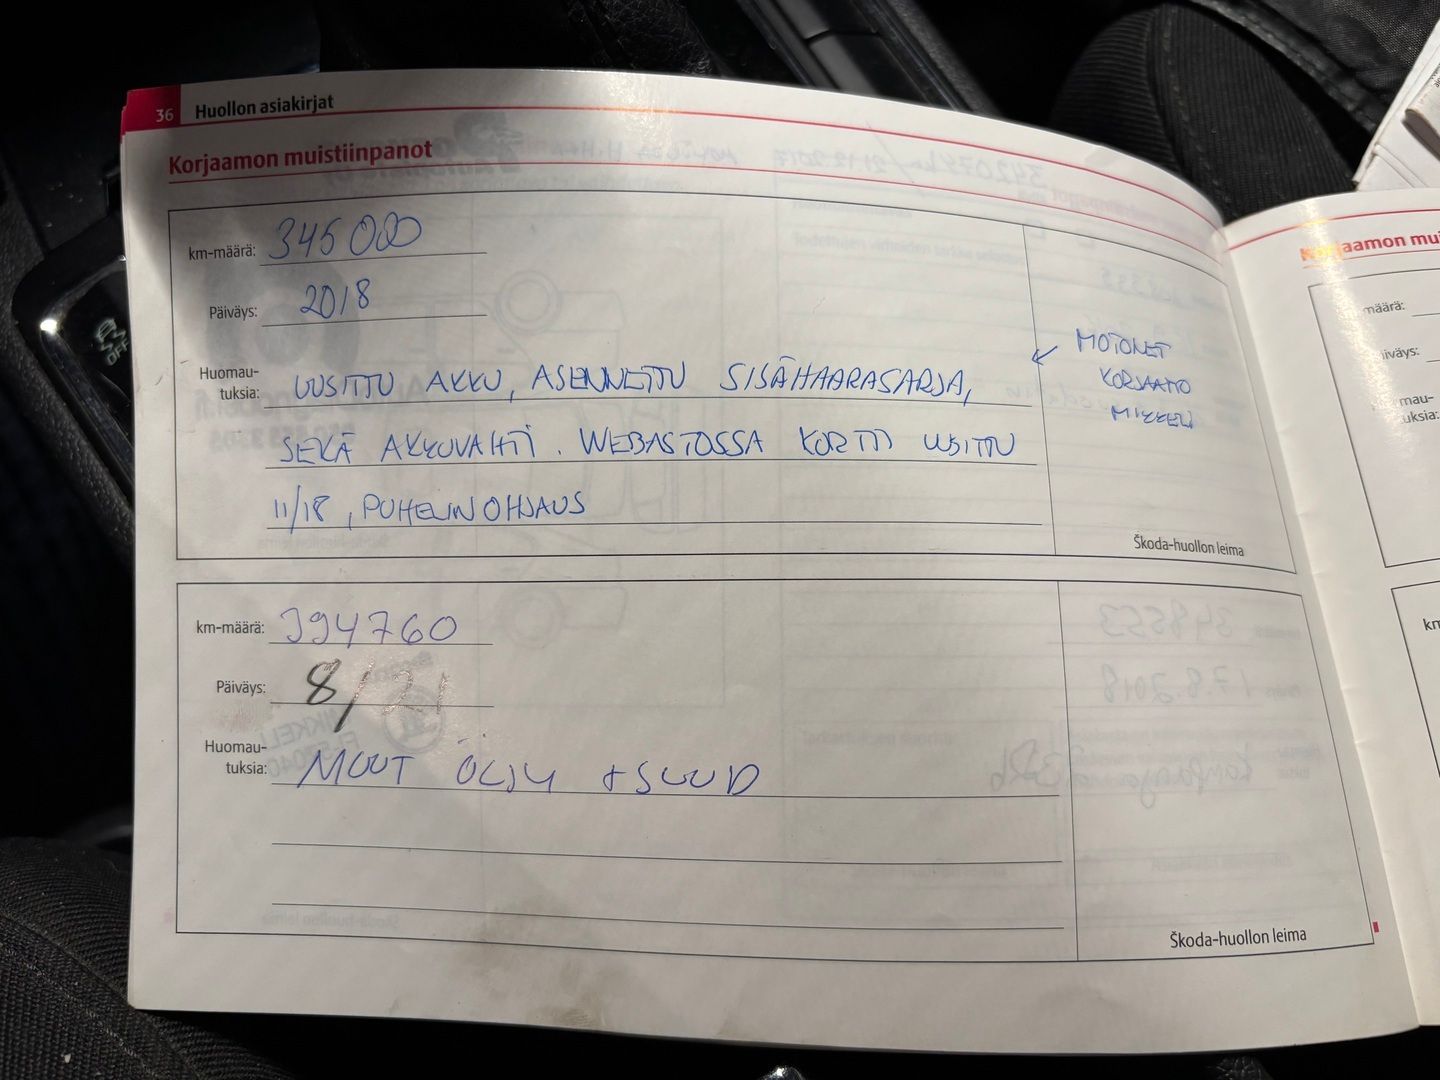 36 Huollon asiakirjat
Korjaamon muistiinpanot
km-määrä: 345000
Päiväys: 2018
Huomau-
tuksia: UUSITTU AKKU, ASENNETTU SISÄHAARASARJA,
SEKÄ AKKUVAHTI. WEBASTOSSA KORTTI UUSITTU
11/18, PUHELINOHJAUS
MOTONET
KORJAAMO
MIKKELI
Škoda-huollon leima
km-määrä: 394760
Päiväys: 8/21
Huomau-
tuksia: MUUT ÖLJY + SUUD
Škoda-huollon leima
Korjaamon mui
määrä:
iväys:
mau-
uksia:
km